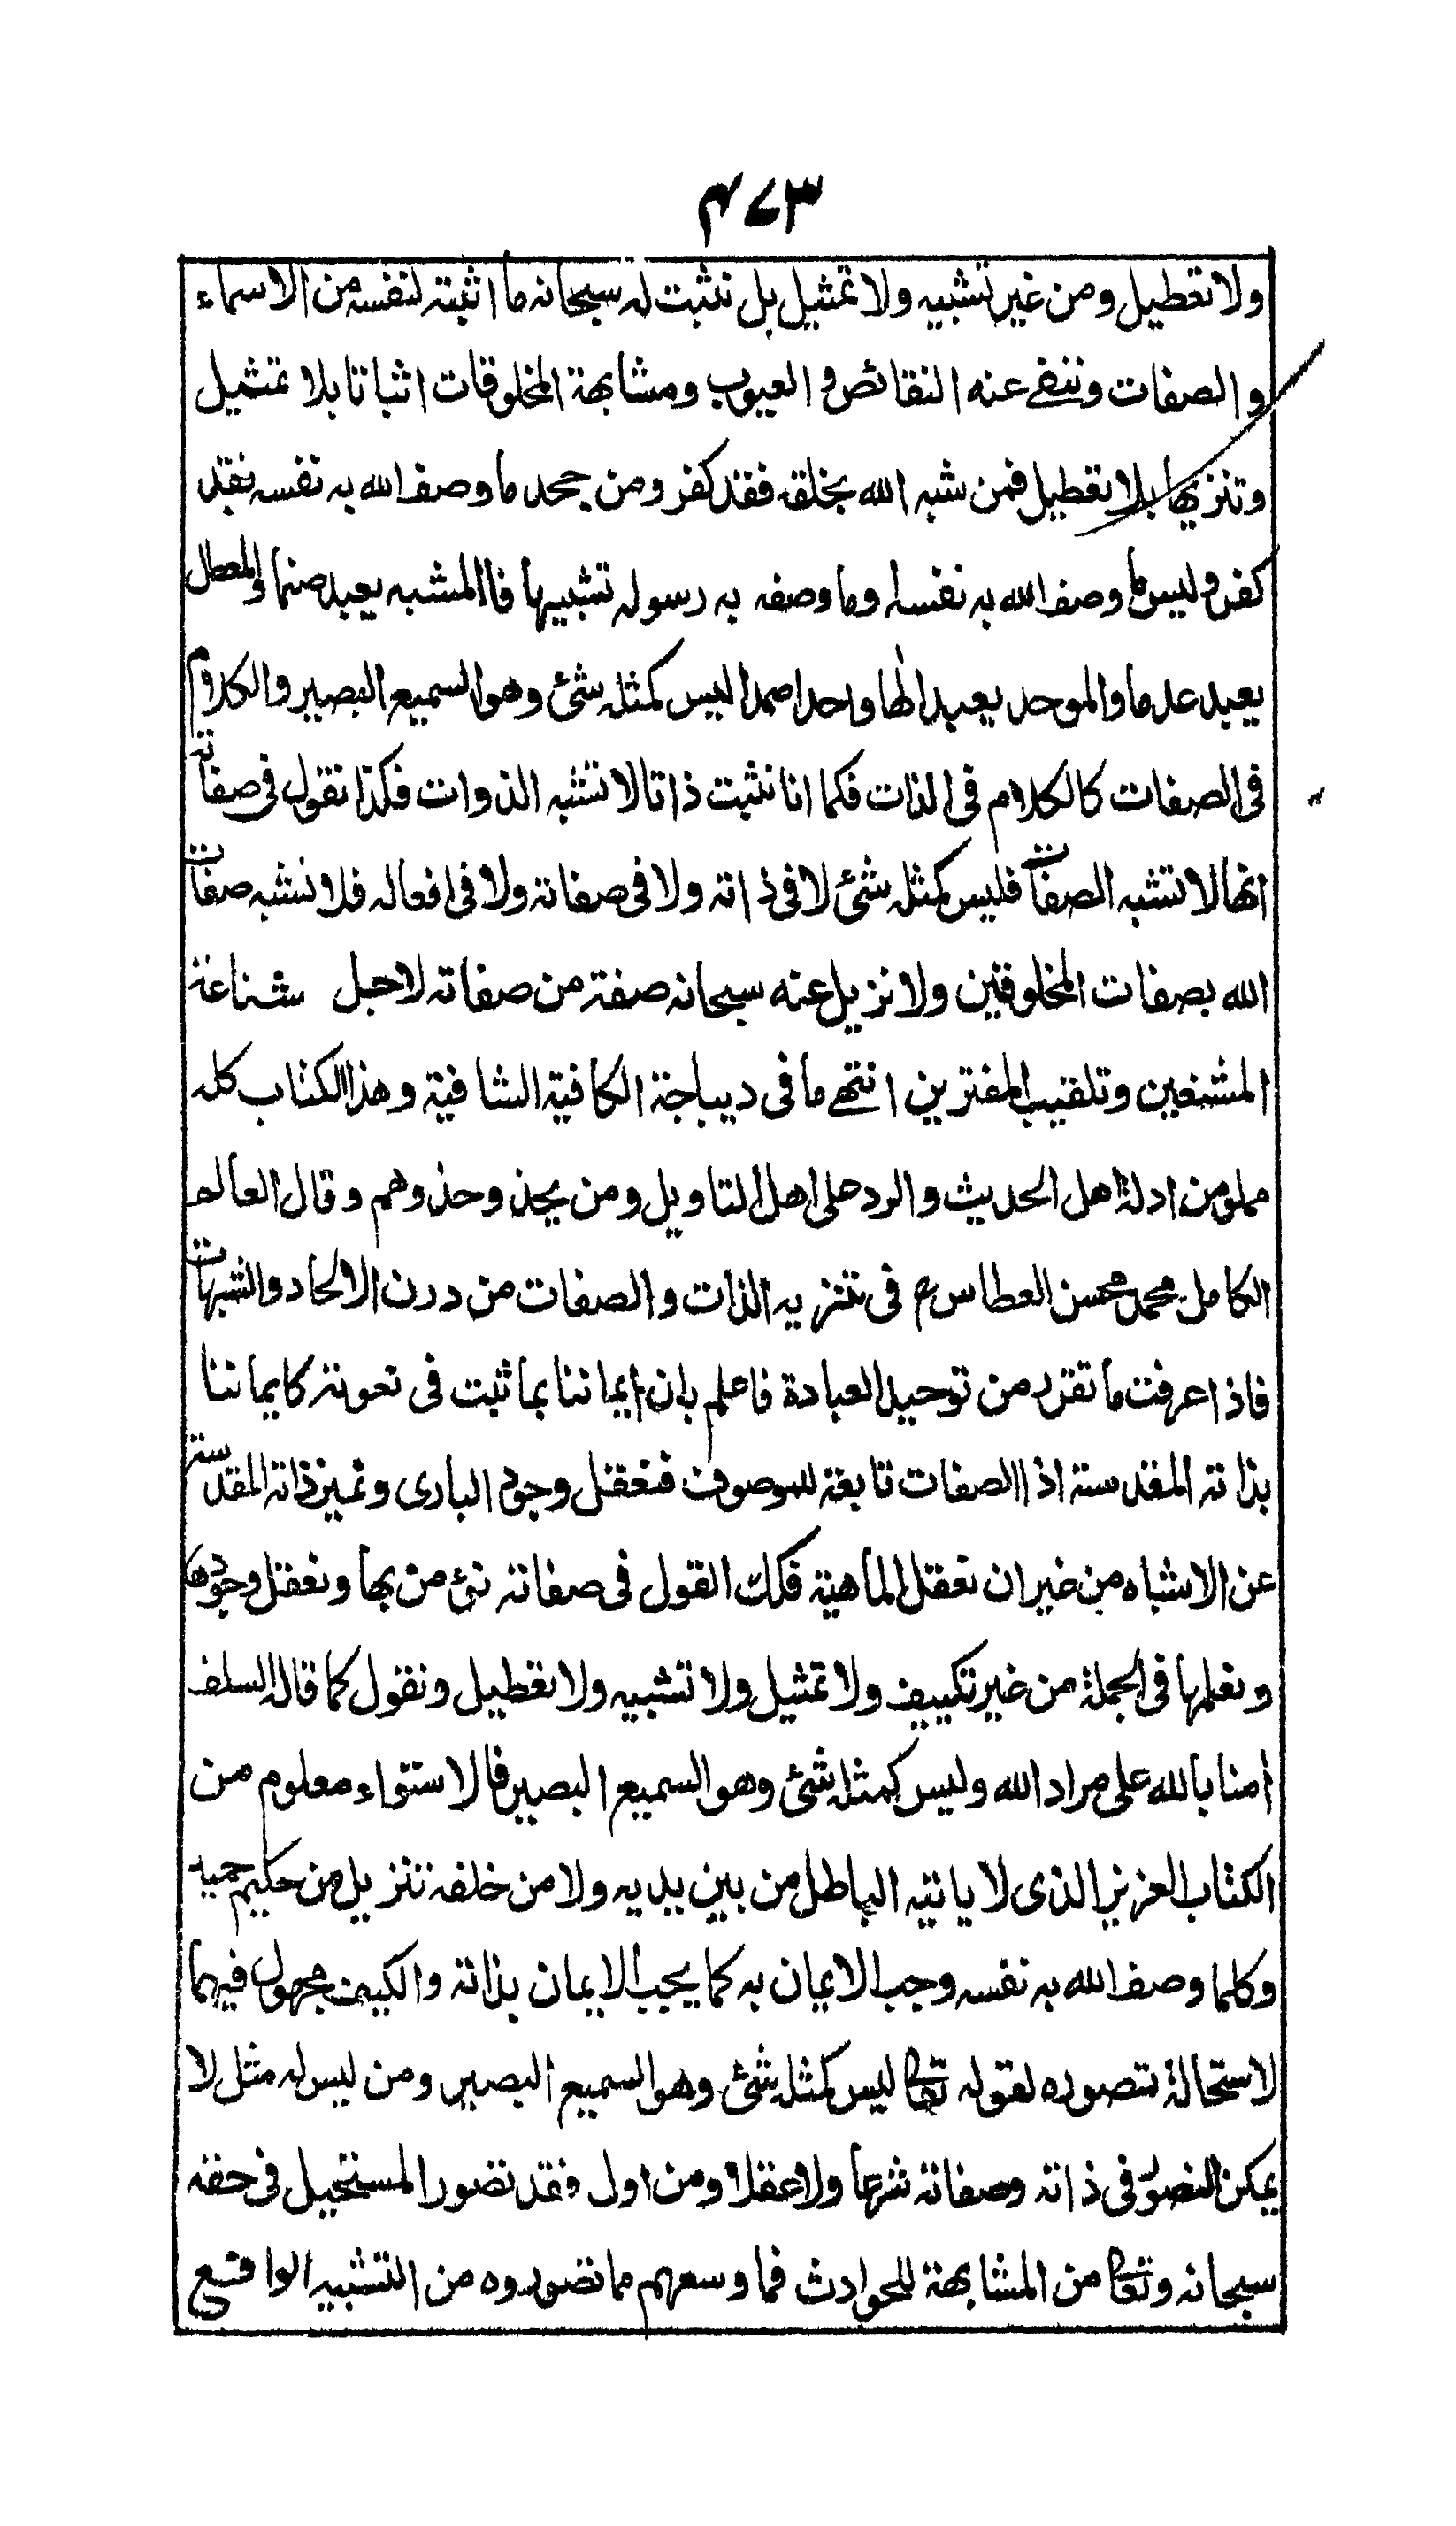 ۴۷۳
ولا تعطيل ومن غير تشبيه ولا تمثيل بل نثبت له سبحانه ما اثبته لنفسه من الاسماء
والصفات وننفے عنه النقائص و العيوب ومشابهة المخلوقات اثباتا بلا تمثيل
وتنزيها بلا تعطيل فمن شبه الله بخلقه فقد كفر ومن جحد ما وصف الله به نفسه فقد
كفر وليس ما وصف الله به نفسه وما وصفه به رسوله تشبيها فالمشبه يعبد صنما والمعطل
يعبد عدما والموحد يعبد الٰها واحدا صمدا ليس كمثله شئ وهو السميع البصير والكلام
فى الصفات كالكلام فى الذات فكما انا نثبت ذاتا لا تشبه الذوات فكذا نقول فى صفاته
انها لا تشبه الصفات فليس كمثله شئ لا فى ذاته ولا فى صفاته ولا فى افعاله فلا نشبه صفات
الله بصفات المخلوقين ولا نزيل عنه سبحانه صفة من صفاته لاجل شناعة
المشنعين وتلقيب المفترين انتهے ما فى ديباجة الكافية الشافية وهذا الكتاب كله
مملو من ادلة اهل الحديث والرد على اهل التاويل ومن يحذ وحذوهم وقال العالم
الكامل محمد محسن العطاس رح فى تنزيه الذات والصفات من درن الالحاد والشبهات
فاذا عرفت ما تقرر من توحيد العبادة فاعلم بان ايماننا بما ثبت فى نعوته كايماننا
بذاته المقدسة اذ الصفات تابعة للموصوف فنعقل وجود البارى ونميز ذاته المقدسة
عن الاشباه من غير ان نعقل الماهية فكك القول فى صفاته نئ من بها ونعقل وجودها
ونعلمها فى الجملة من غير تكييف ولا تمثيل ولا تشبيه ولا تعطيل ونقول كما قاله السلف
امنا بالله على مراد الله وليس كمثله شئ وهو السميع البصير فالاستواء معلوم من
الكتاب العزيز الذى لا ياتيه الباطل من بين يديه ولا من خلفه تنزيل من حكيم حميد
وكلما وصف الله به نفسه وجب الايمان به كما يجب الايمان بذاته والكيف مجهول فيهما
لاستحالة تصوره لقوله تعالى ليس كمثله شئ وهو السميع البصير ومن ليس له مثل لا
يمكن التصور فى ذاته وصفاته شرعا ولا عقلا ومن اول فقد تصور المستحيل فى حقه
سبحانه وتعالى من المشابهة للحوادث فما وسعهم مما تصوروه من التشبيه الواقع